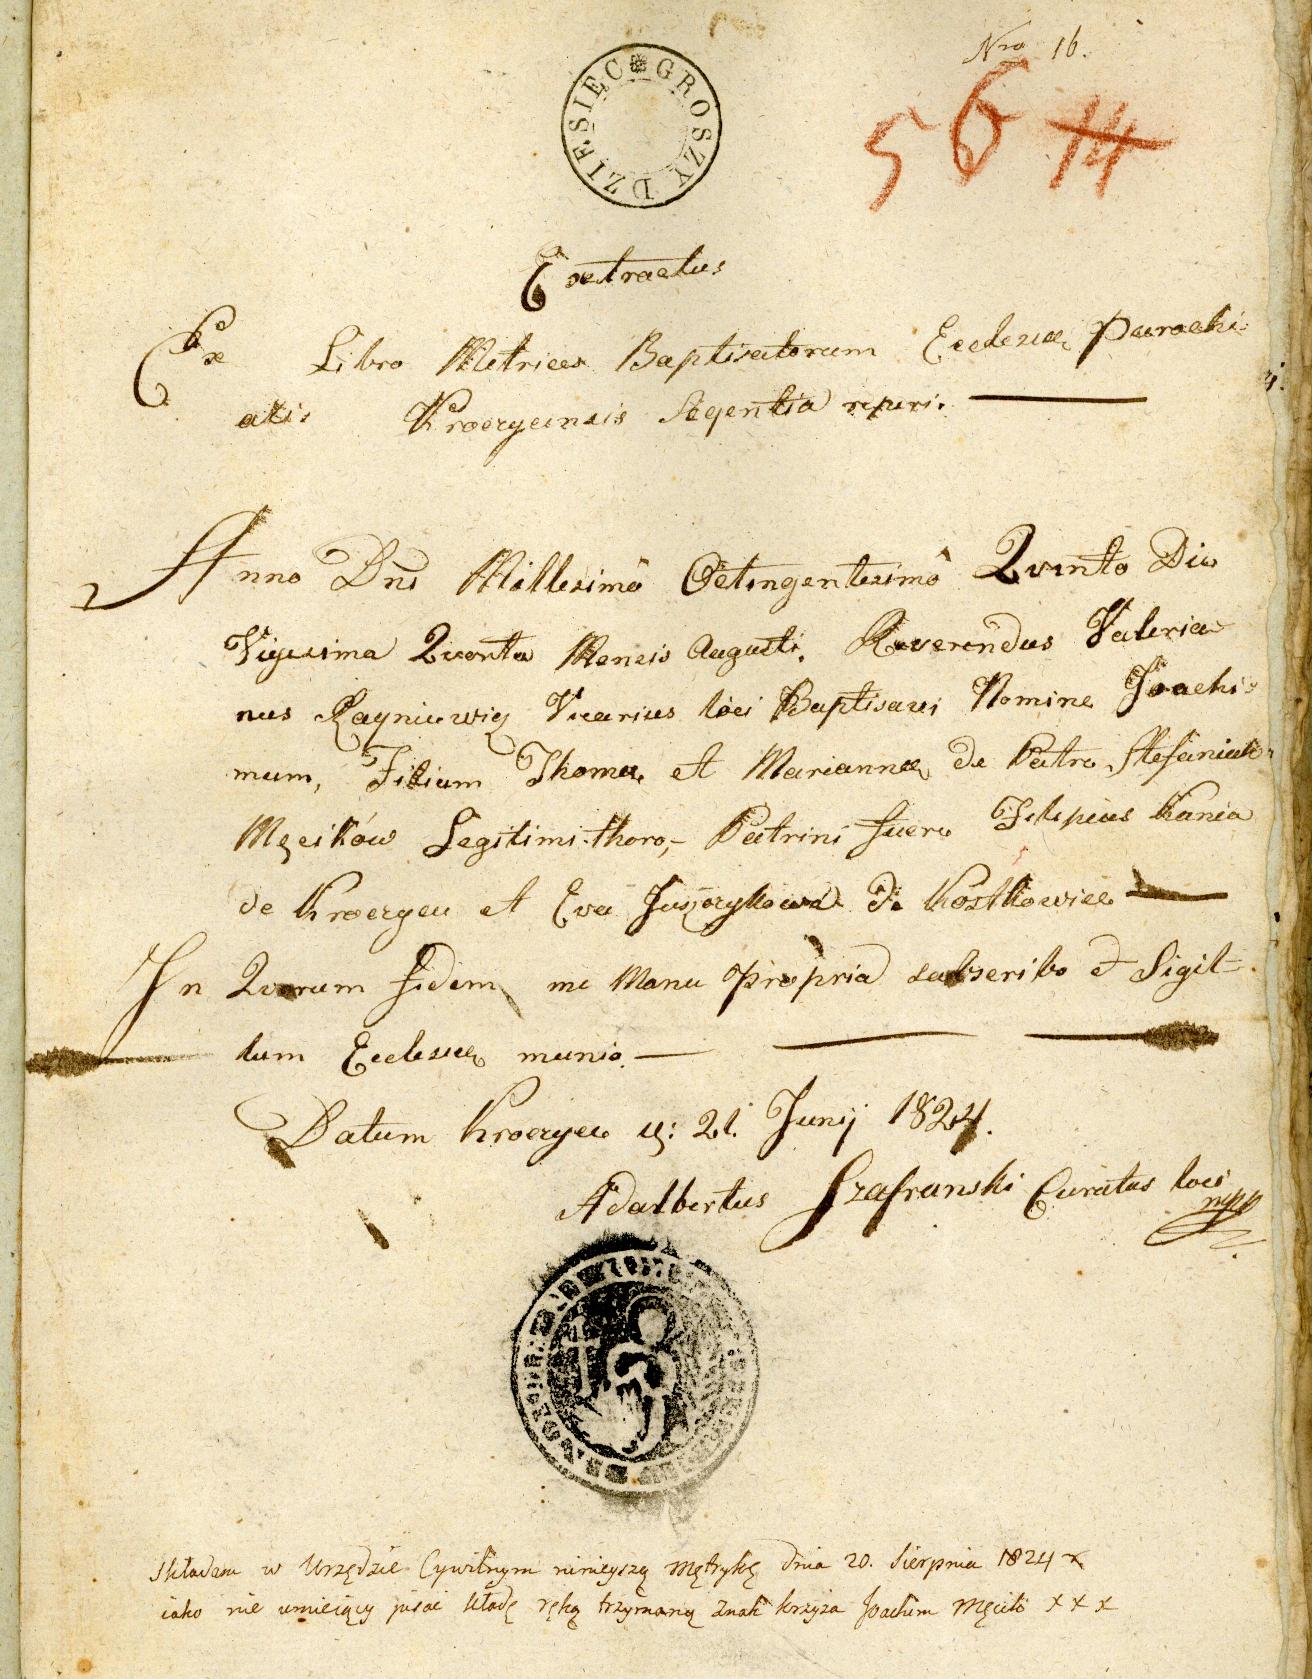 Nro 16.
DZIESIĘC GROSZY
5 6 14
Extractus
Ex Libro Metrices Baptisatorum Ecclesiæ Parochi-
alis Kroczycensis Seqentia reperi.
Anno Dni Millesimô Octingentesimô Qvinto Die
Vigesima Qvinta Mensis Augusti. Reverendus Valeria-
nus Vicarius loci Baptisavi Nomine Joachi-
mum, Filium Thomæ et Mariannæ de Patre Stefaniak
Męcików Legitimi thoro,- Patrini fuere Filipus Kania
de Kroczyce et Eva de Kostkowice
In Qvorum fidem me Manu Propria subscribo et Sigil-
lum Ecclesiæ munio.
Datum Kroczyce d: 21. Junij 1824.
Adalbertus Szafranski Curatus loci
mpp
Składam w Urzędzie Cywilnym ninieyszą Mętrykę dnia 20. Sierpnia 1824 x
iako nie umieiący pisać kładę ręką trzymaną znak krzyża Joachim Męcik x x x